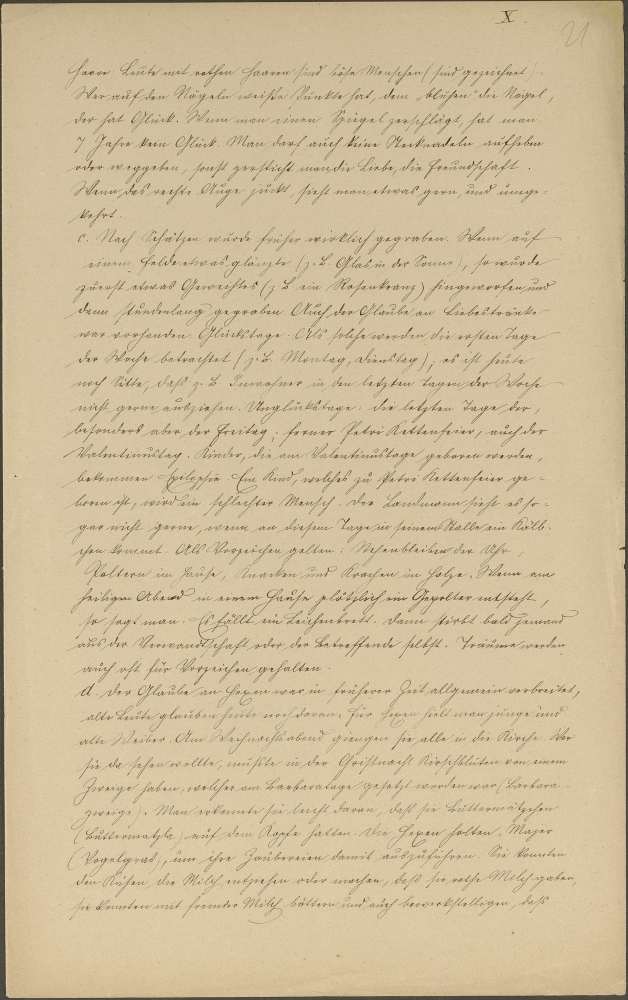 X.
21
Haare. Leute mit rothen Haaren sind böse Menschen (sind gezeichnet).
Wer auf den Nägeln weiße Punkte hat, dem „blühen“ die Nägel,
der hat Glück. Wenn man einen Spiegel zerschlägt, hat man
7 Jahre kein Glück. Man darf auch keine Stecknadeln aufheben
oder weggeben, sonst zersticht man die Liebe, die Freundschaft.
Wenn das rechte Auge juckt, sieht man etwas gern, und umge-
kehrt.
c. Nach Schätzen wurde früher wirklich gegraben. Wenn auf
einem Felde etwas glänzte (z. B. Glas in der Sonne), so wurde
zuerst etwas Geweihtes (z. B. ein Rosenkranz) hingeworfen und
dann stundenlang gegraben. Auch der Glaube an Liebestränke
war vorhanden. Glückstage. Als solche werden die ersten Tage
der Woche betrachtet (z. B. Montag, Dienstag); es ist heute
noch Sitte, daß z. B. Inwohner in den letzten Tagen der Woche
nicht gerne ausziehen. Unglückstage: die letzten Tage der,
besonders aber der Freitag; ferner Petri Kettenfeier, auch der
Valentinustag. Kinder, die am Valentinustage geboren werden,
bekommen Epilepsie. Ein Kind, welches zu Petri Kettenfeier ge-
boren ist, wird ein schlechter Mensch. Der Landmann sieht es so-
gar nicht gerne, wenn an diesem Tage in seinem Stalle ein Kälb-
chen kommt. Als Vorzeichen gelten: Stehenbleiben der Uhr,
Poltern im Hause, Knacken und Krachen im Holze. Wenn am
heiligen Abend in einem Hause plötzlich ein Gepolter entsteht,
so sagt man: Es fällt ein Leichenbrett. Dann stirbt bald jemand
aus der Verwandtschaft oder der Betreffende selbst. Träume werden
auch oft für Vorzeichen gehalten.
d. Der Glaube an Hexen war in früherer Zeit allgemein verbreitet,
alte Leute glauben heute noch daran. Für Hexen hielt man junge und
alte Weiber. Am Weihnachtsabend giengen sie alle in die Kirche. Wer
sie da sehen wollte, mußte in der Christnacht Kirschblüten von einem
Zweige haben, welcher am Barbaratage gesetzt worden war (Barbara-
zweige). Man erkannte sie leicht daran, daß sie Buttermützchen
(Buttermatzla) auf dem Kopfe hatten. Die Hexen holten
(Vogelgras), um ihre Zaubereien damit auszuführen. Sie konnten
den Kühen die Milch entziehen oder machen, daß sie rothe Milch gaben,
sie konnten mit fremder Milch buttern und auch bewerkstelligen, daß